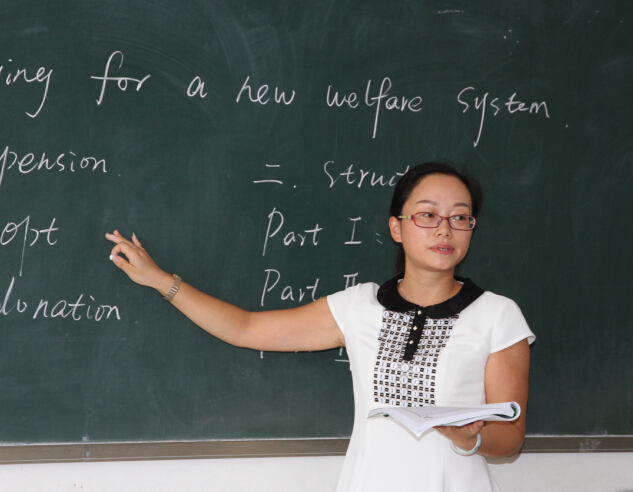 ing for a new welfare system.
pension.
opt
donation
二. Struct
Part I:
Part II